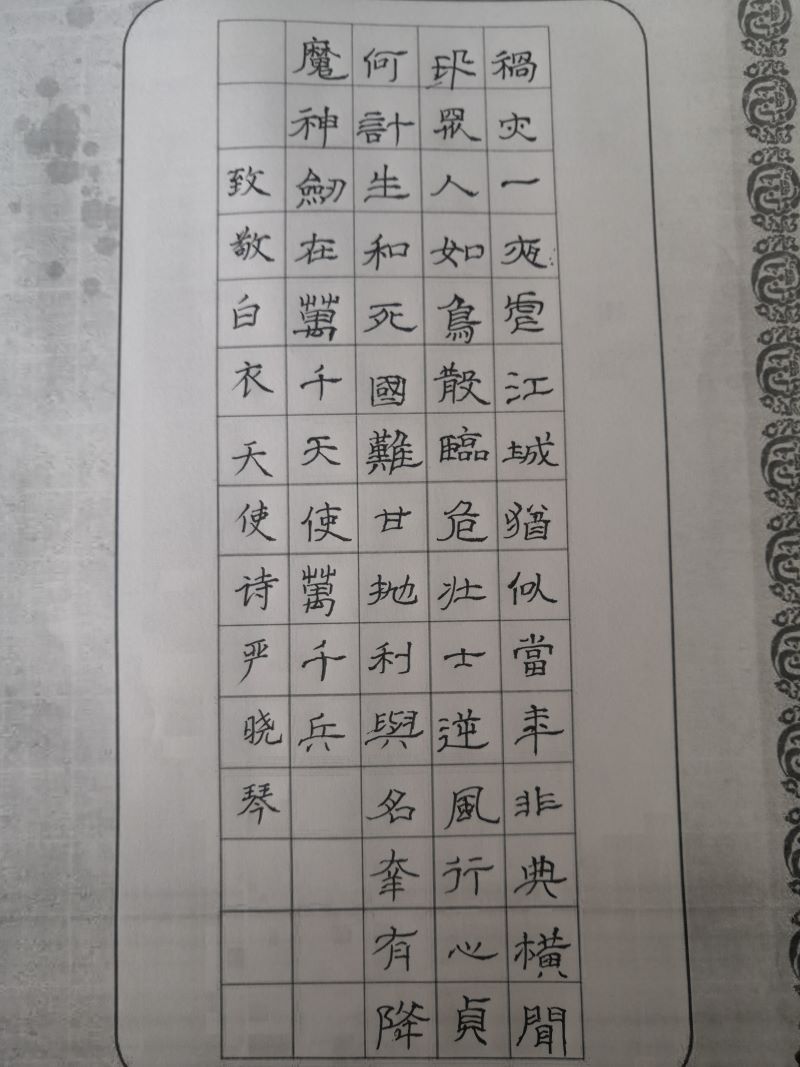 禍灾一夜虐江城猶似當年非典橫聞
眾人如鳥散臨危壯士逆風行心貞
何計生和死國難甘抛利與名幸有降
魔神劒在萬千天使萬千兵
致敬白衣天使诗严晓琴